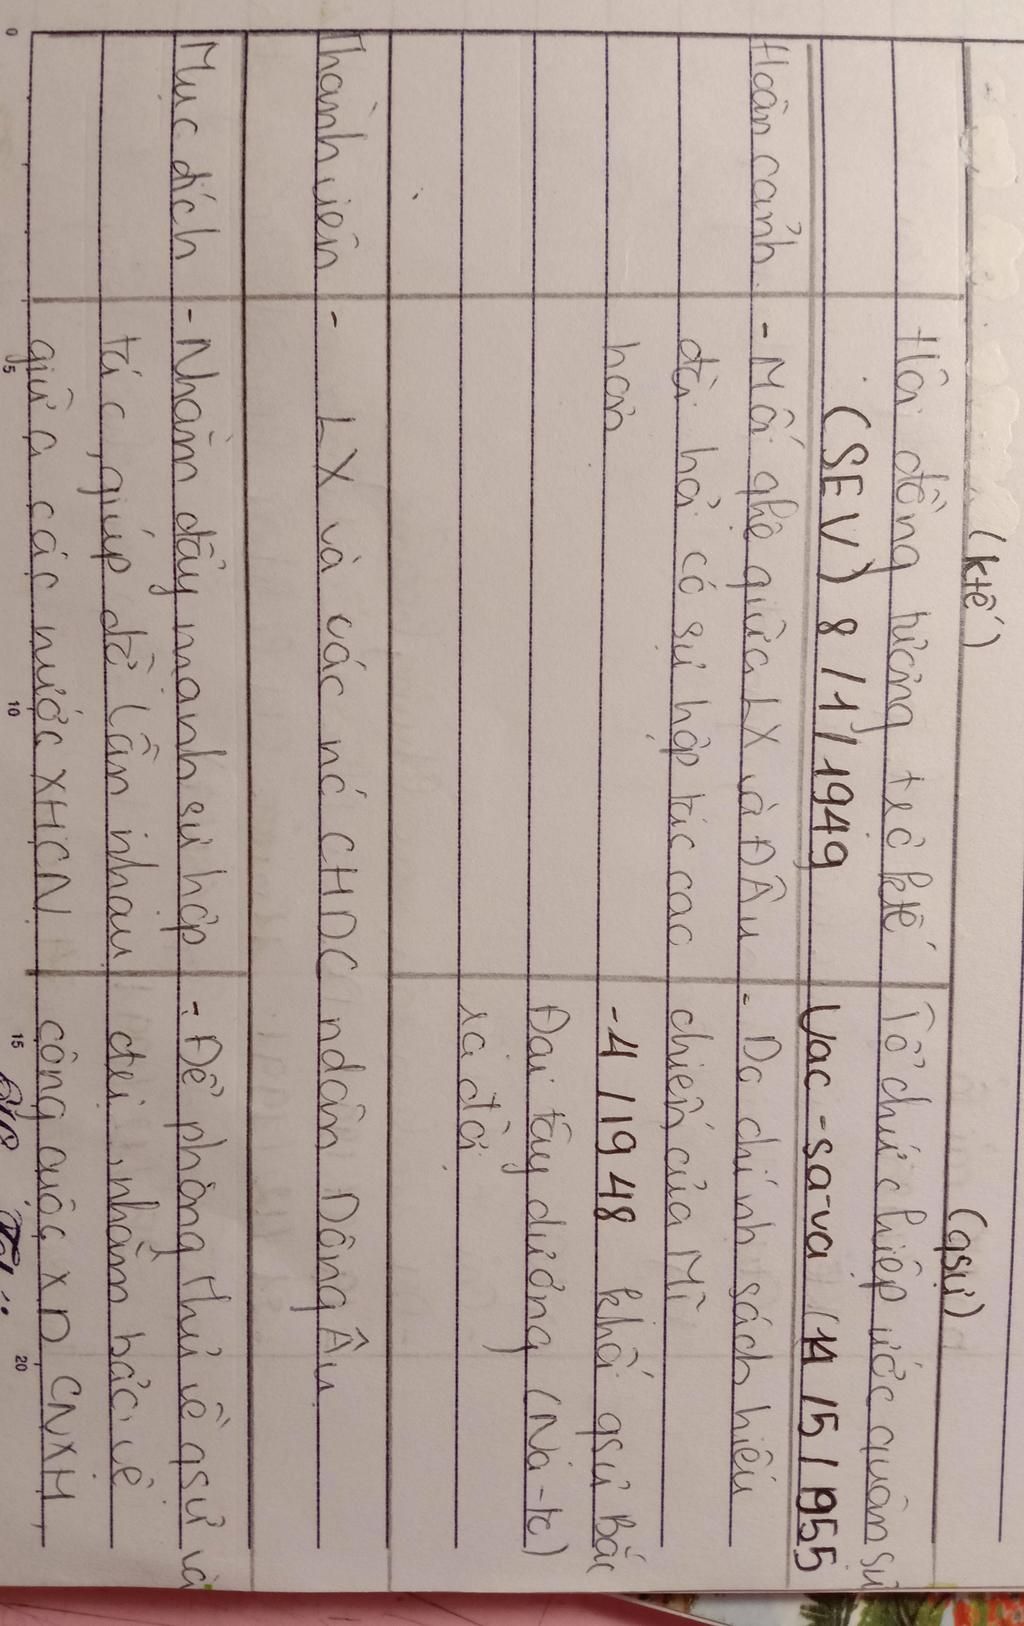 (ktế) (qsự)
Hội đồng tương trợ ktế Tổ chức hiệp ước quân sự
(SEV) 8/1/1949 Vac-sa-va (14/5/1955
Hoàn cảnh - Mối qhệ giữa LX và ĐÂu - Do chính sách hiếu
đòi hỏi có sự hợp tác cao chiến của Mĩ
hơn -4/1948 khối qsự Bắc
Đại tây dương (Na-to)
ra đời
Thành viên - LX và các nc CHDC ndân Dông Âu
Mục đích - Nhằm đẩy mạnh sự hợp - Để phòng thủ về qsự và
tác, giúp đỡ lẫn nhau , nhằm bảo vệ
giữa các nước XHCN công cuộc XD CNXH
0 5 10 15 20